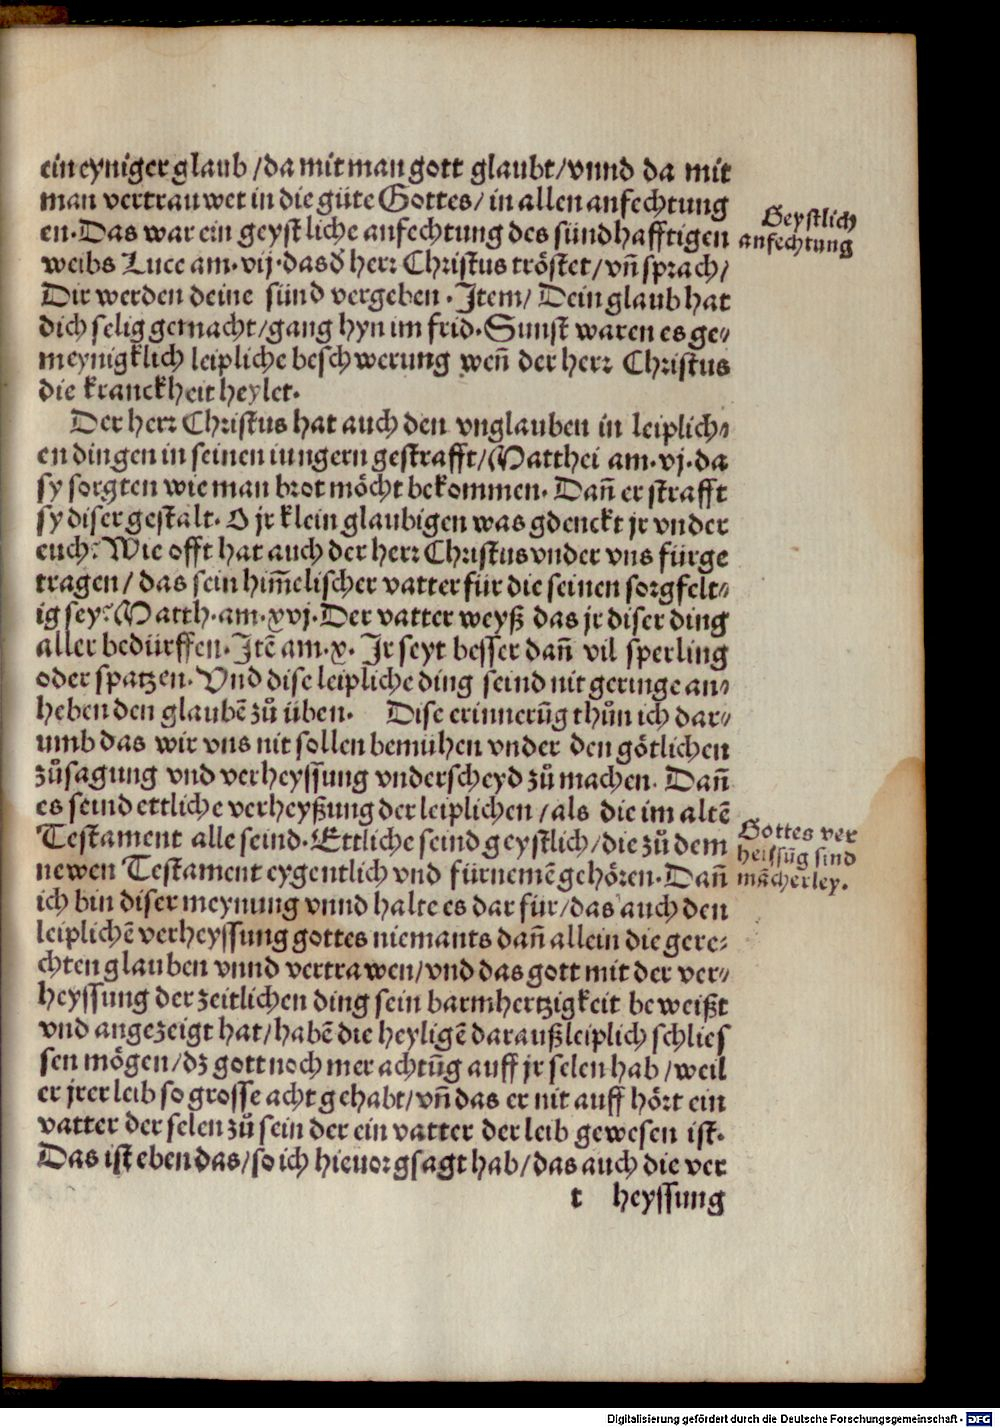 ein eyniger glaub /da mit man gott glaubt/vnnd da mit
man vertrauwet in die güte Gottes/ in allen anfechtung
en. Das war ein geystliche anfechtung des sündhafftigen
weibs Luce am. vij. das d̕ herr Christus tröstet/vn̄ sprach/
Dir werden deine sünd vergeben. Item/ Dein glaub hat
dich selig gemacht/gang hyn im frid. Sunst waren es ge⸗
meynigklich leipliche beschwerung wen̄ der herr Christus
die kranckheit heylet.
Geystlich
anfechtung
Der herr Christus hat auch den vnglauben in leiplich⸗
en dingen in seinen iungern gestrafft/Matthei am. vj. da
sy sorgten wie man brot möcht bekommen. Dan̄ er strafft
sy diser gestalt. O jr klein glaubigen was gdenckt jr vnder
euch? Wie offt hat auch der herr Christus vnder vns fürge
tragen/ das sein him̄elischer vatter für die seinen sorgfelt⸗
ig sey? Matth. am. xvj. Der vatter weyß das jr diser ding
aller bedürffen. Itē am. x. Ir seyt besser dan̄ vil sperling
oder spatzen. Vnd dise leipliche ding seind nit geringe an⸗
heben den glaubē zů üben. Dise erinnerūg thůn ich dar⸗
umb das wir vns nit sollen bemühen vnder den götlichen
zůsagung vnd verheyssung vnderscheyd zů machen. Dan̄
es seind ettliche verheyßung der leiplichen /als die im altē
Testament alle seind. Ettliche seind geystlich/die zů dem
newen Testament eygentlich vnd fürnemē gehören. Dan̄
ich bin diser meynung vnnd halte es dar für/das auch den
leiplichē verheyssung gottes niemants dan̄ allein die gere⸗
chten glauben vnnd vertrawen/vnd das gott mit der ver⸗
heyssung der zeitlichen ding sein barmhertzigkeit beweißt
vnd angezeigt hat/habē die heyligē daraußleiplich schlies
sen mögen/dz gott noch mer achtūg auff jr selen hab /weil
er jrer leib so grosse acht gehabt/vn̄ das er nit auff hört ein
vatter der selen zů sein der ein vatter der leib gewesen ist.
Das ist eben das/so ich hieuor gsagt hab/das auch die ver
Gottes ver
heissūg sind
mācherley.
t heyssung
Digitalisierung gefördert durch die Deutsche Forschungsgemeinschaft - DFG